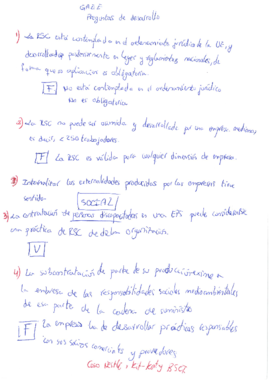 G.R.E.E
Preguntas de desarrollo
1) La RSC está contemplada en el ordenamiento jurídico de la UE, y
desarrollada posteriormente en leyes y reglamentos nacionales, de
forma que su aplicación es obligatoria.
F No está contemplada en el ordenamiento jurídico
No es obligatoria
2) La RSC no puede ser asumida y desarrollada por una empresa mediana
es decir, < 250 trabajadores
F La RSC es válida para cualquier dimensión de empresa.
Internalizar las externalidades producidas por las empresas tiene
sentido SOCIAL
3) La contratación de personas discapacitadas en una EPS puede considerarse
una práctica de RSC de dicha organización.
V
4) La subcontratación de parte de su producción exime a
la empresa de las responsabilidades sociales medioambientales
de esa parte de la cadena de suministro
F La empresa ha de desarrollar prácticas responsables
con sus socios comerciales y proveedores
Caso Nestlé, Kit-Kat y